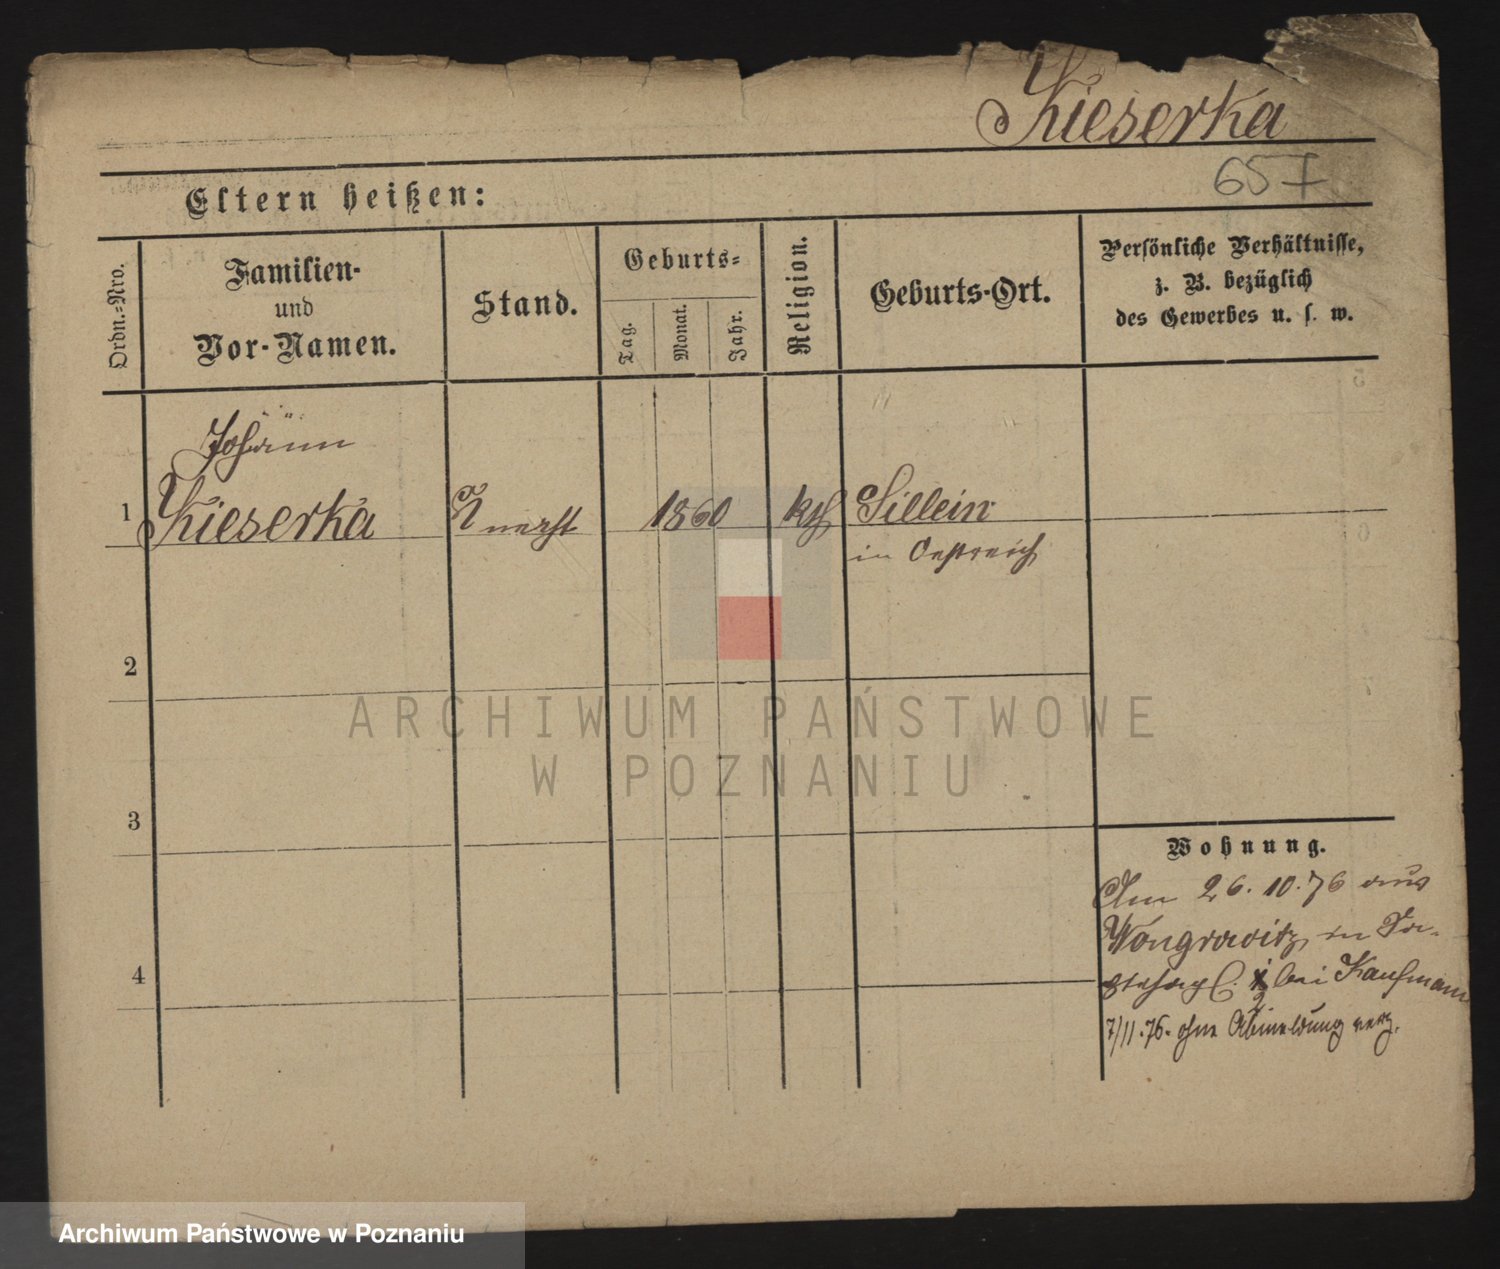 Kieserka
657
Eltern heißen:
Ordn.-Nro.
Familien-
und
Vor-Namen.
Stand.
Geburts-
Tag.
Monat.
Jahr.
Religion.
Geburts-Ort.
Persönliche Verhältnisse,
z. B. bezüglich
des Gewerbes u. s. w.
Johann
1 Kieserka Knecht 1860 kth Sillein
in Oestreich
2
3
4
Wohnung.
Am 26.10.76 aus
Wongrowitz in
bei Kaufmann
2
7/11.76. ohne Abmeldung verz.
ARCHIWUM PAŃSTWOWE
W POZNANIU
Archiwum Państwowe w Poznaniu